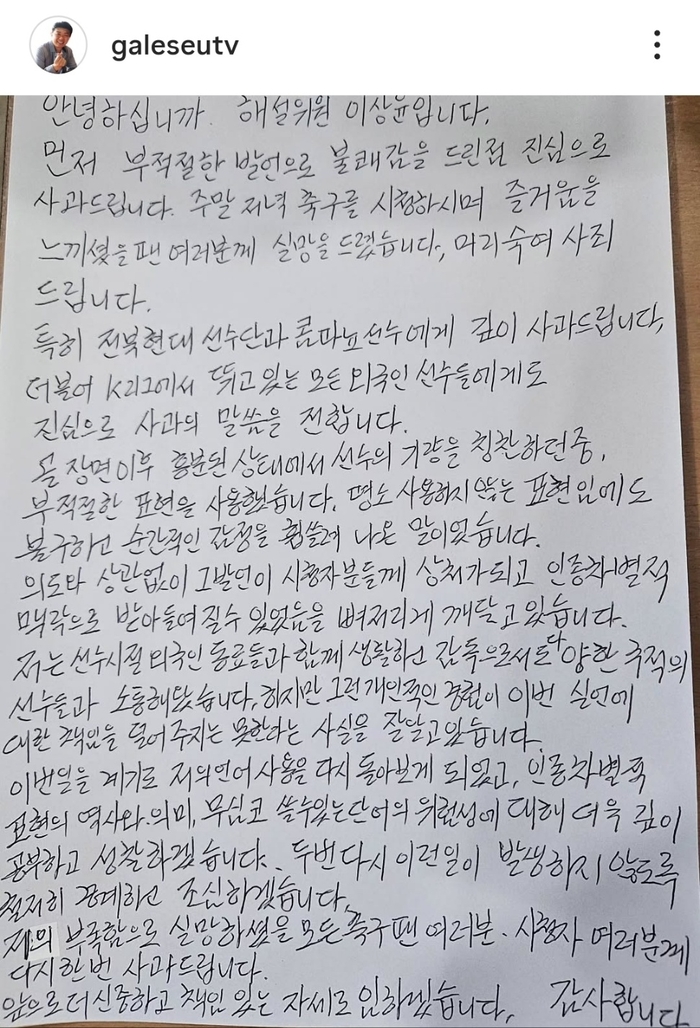 galeseutv
안녕하십니까. 해설위원 이상윤입니다.
먼저 부적절한 발언으로 불쾌감을 드린점 진심으로
사과드립니다. 주말 저녁 축구를 시청하시며 즐거움을
느끼셨을 팬 여러분께 실망을 드렸습니다, 머리숙여 사죄
드립니다.
특히 전북현대 선수단과 콤파뇨선수에게 깊이 사과드립니다,
더불어 K리그에서 뛰고 있는 모든 외국인 선수들에게도
진심으로 사과의 말씀을 전합니다.
골 장면이후 흥분된 상태에서 선수의 기량을 칭찬하던중,
부적절한 표현을 사용했습니다. 평소 사용하지 않는 표현임에도
불구하고 순간적인 감정을 휩쓸려 나온 말이었습니다.
의도와 상관없이 그발언이 시청자분들께 상처가되고 인종차별적
맥락으로 받아들여질수 있었음을 뼈저리게 깨닫고 있습니다.
저는 선수시절 외국인 동료들과 함께 생활하고 감독으로서도 다양한 국적의
선수들과 소통해왔습니다. 하지만 그런 개인적인 경험이 이번 실언에
대한 책임을 덜어주지는 못한다는 사실을 잘알고있습니다.
이번일을 계기로 저의언어사용을 다시 돌아보게 되었고, 인종차별적
표현의 역사와 의미, 무심코 쓸수있는단어의 위험성에 대해 더욱 깊이
공부하고 성찰하겠습니다. 두번다시 이런일이 발생하지 않도록
철저히 경계하고 조심하겠습니다.
저의 부족함으로 실망하셨을 모든 축구팬 여러분. 시청자 여러분께
다시한번 사과드립니다.
앞으로더신중하고 책임 있는 자세로 임하겠습니다, 감사합니다